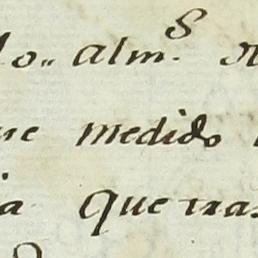 lo.. alm.s
ue medido
ia Que tra